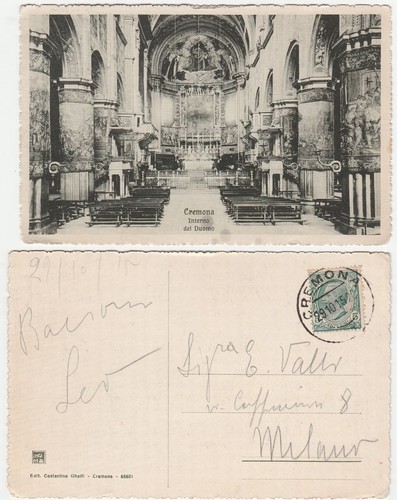 Cremona
Interno
del Duomo
29/10/15
Leo
CREMONA
29.10.15
Sig.ra E. Valle
8
Milano
Edit. Costantino Ghelfi - Cremona -